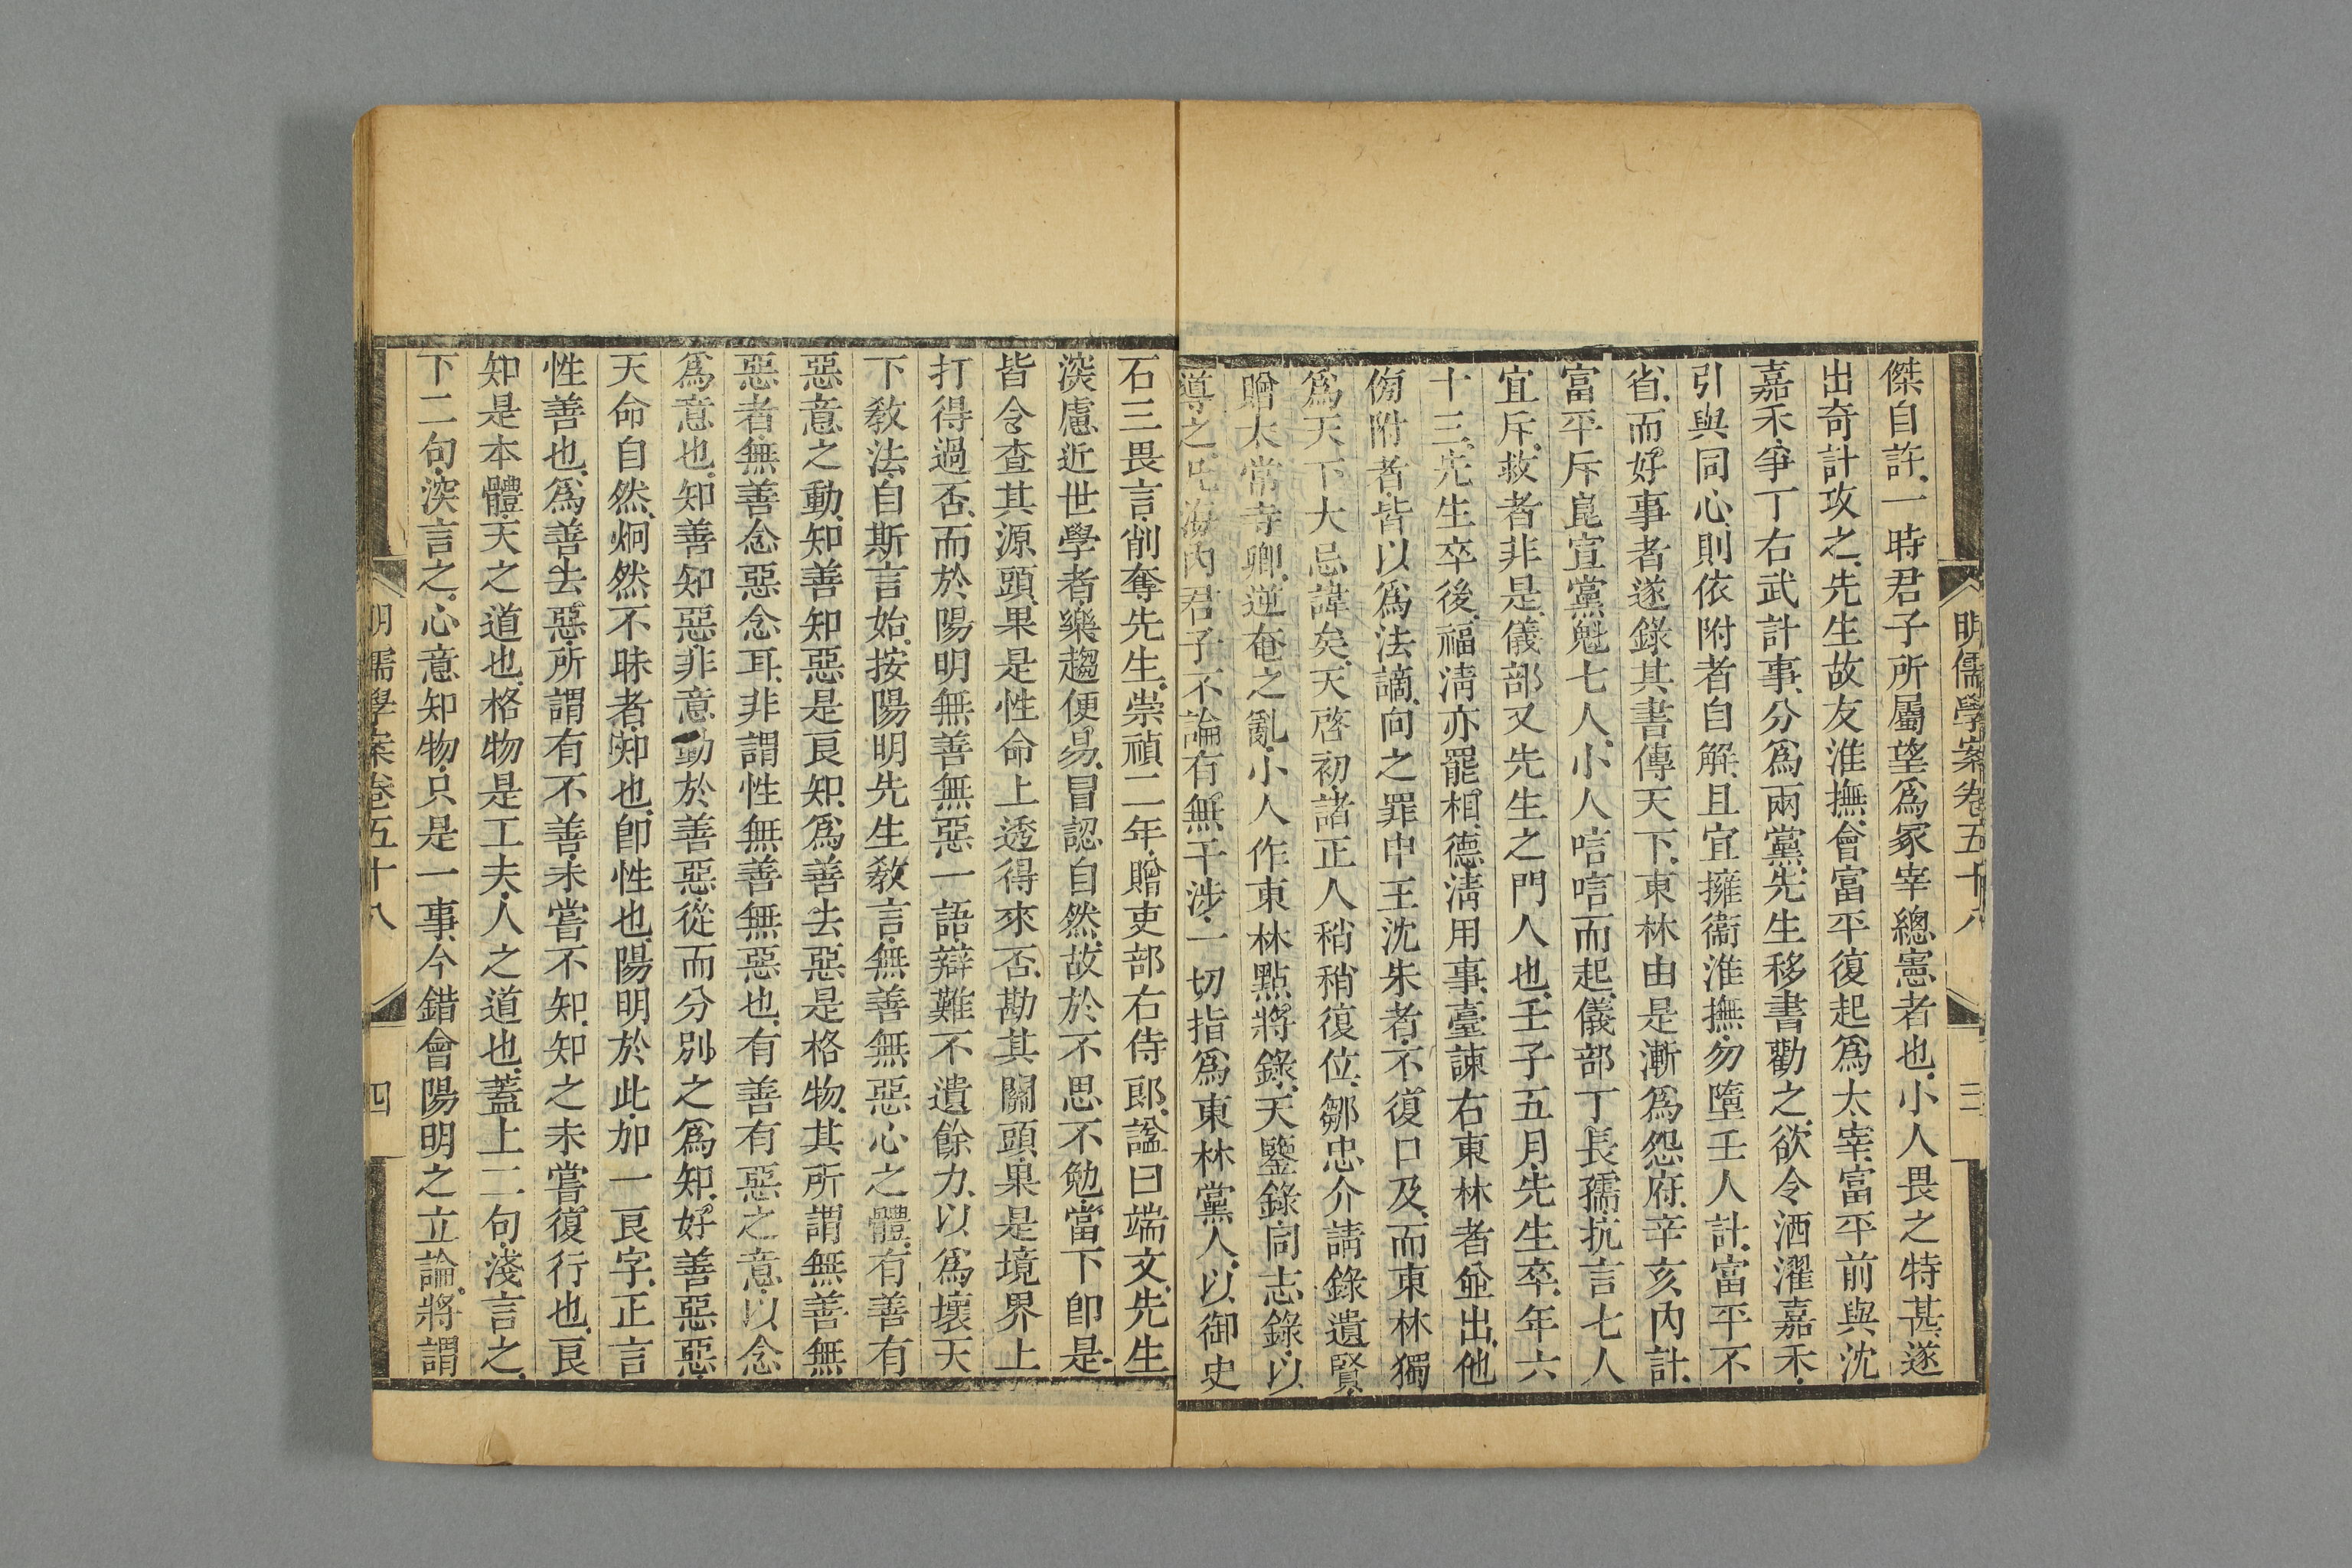 明儒學案卷五十八
三
傑自許、一時君子所屬望爲冢宰總憲者也、小人畏之特甚、遂
出奇計攻之、先生故友淮撫、會富平復起爲太宰、富平前與沈
嘉禾爭丁右武計事、分爲兩黨、先生移書勸之、欲令洒濯嘉禾、
引與同心、則依附者自解、且宜擁衞淮撫、勿墮壬人計、富平不
省、而好事者遂錄其書傳天下、東林由是漸爲怨府、辛亥內計、
富平斥崑宣黨魁七人、小人唁唁而起、儀部丁長孺抗言七人
宜斥、救者非是、儀部又先生之門人也、壬子五月、先生卒、年六
十三、先生卒後、福淸亦罷相、德淸用事、臺諫右東林者竝出、他
傍附者、皆以爲法謫、向之罪申王沈朱者、不復口及、而東林獨
爲天下大忌諱矣、天啓初、諸正人稍稍復位、鄒忠介請錄遺賢、
贈太常寺卿、逆奄之亂、小人作東林點將錄、天鑒錄、同志錄、以
導之、凡海內君子、不論有無干涉、一切指爲東林黨人、以御史
石三畏言、削奪先生、崇禎二年、贈吏部右侍郎、諡曰端文、先生
深慮近世學者、樂趨便易、冒認自然、故於不思不勉、當下卽是、
皆令查其源頭、果是性命上透得來否、勘其關頭、果是境界上
打得過否、而於陽明無善無惡一語、辯難不遺餘力、以爲壞天
下敎法、自斯言始、按陽明先生敎言、無善無惡心之體、有善有
惡意之動、知善知惡是良知、爲善去惡是格物、其所謂無善無
惡者、無善念惡念耳、非謂性無善無惡也、有善有惡之意、以念
爲意也、知善知惡、非意動於善惡、從而分別之爲知、好善惡惡、
天命自然、炯然不昧者、知也、卽性也、陽明於此加一良字、正言
性善也、爲善去惡、所謂有不善未嘗不知、知之未嘗復行也、良
知是本體、天之道也、格物是工夫、人之道也、蓋上二句淺言之、
下二句深言之、心意知物只是一事、今錯會陽明之立論、將謂
明儒學案卷五十八
四